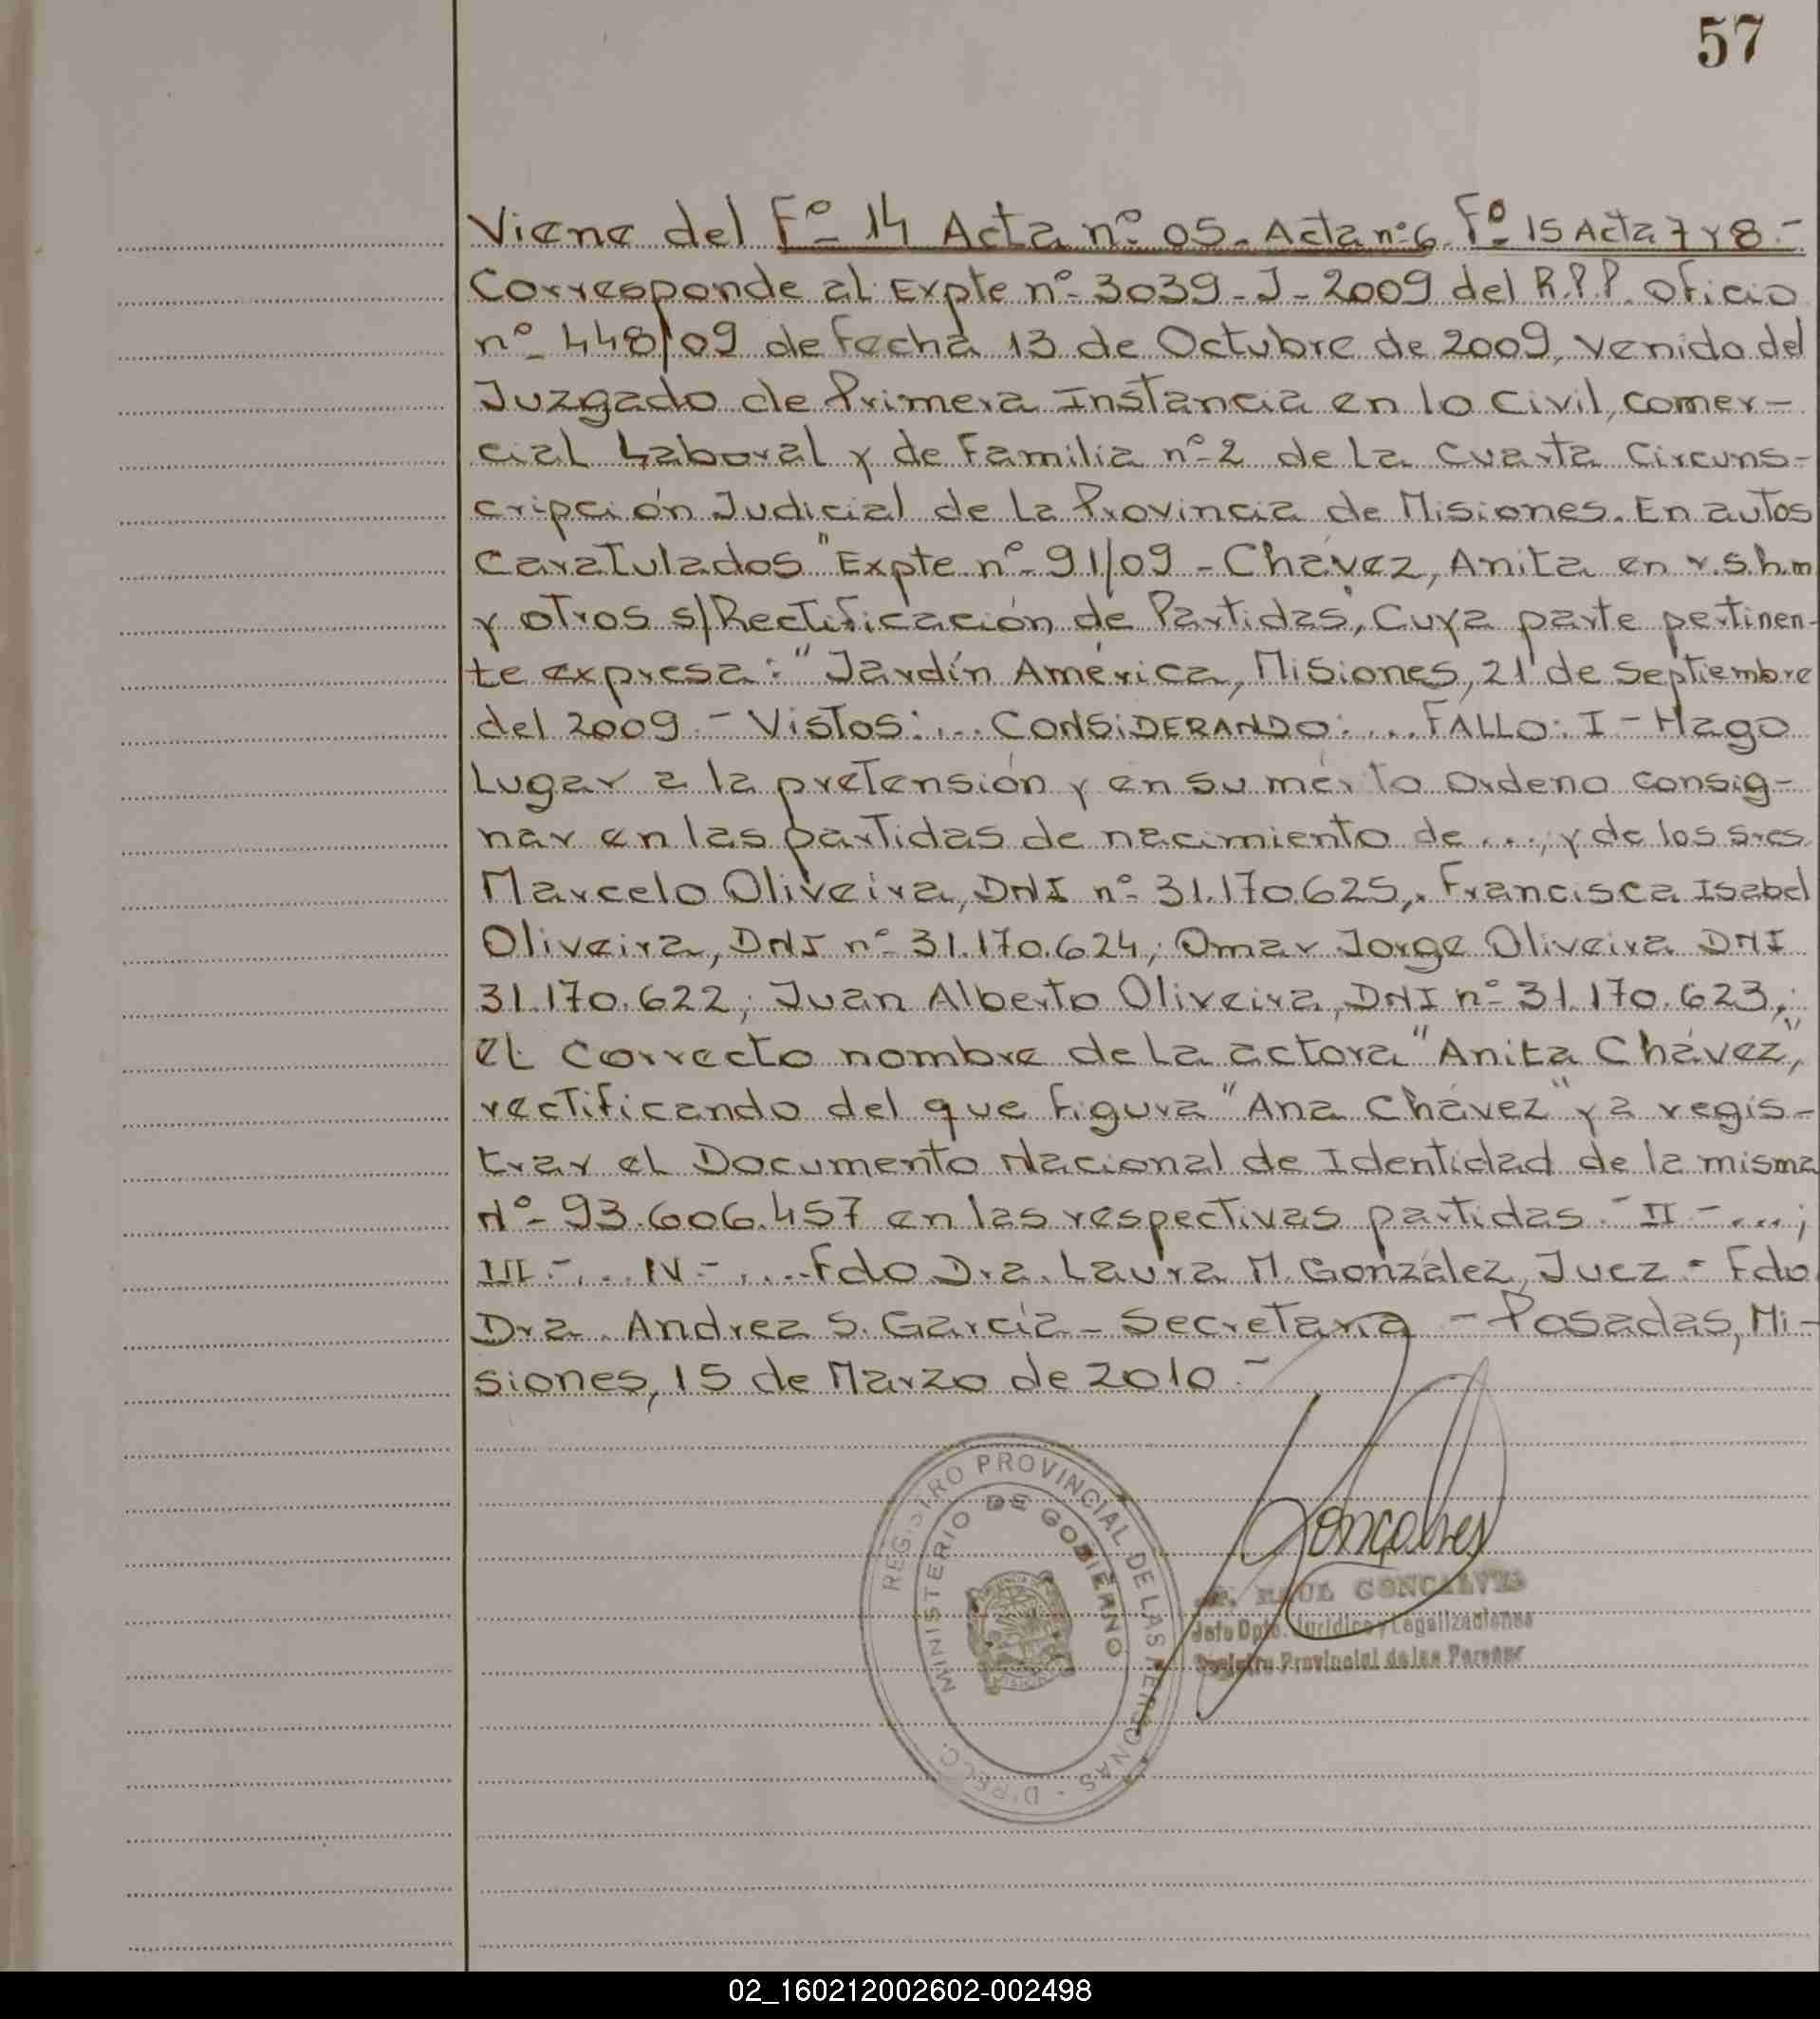 57
Viene del Fº 14 Acta nº 05. Acta nº 6. Fº 15 Acta 7 y 8.-
Corresponde al Expte nº 3039-J-2009 del R.P.P. Oficio
nº 448/09 de fecha 13 de Octubre de 2009, venido del
Juzgado de Primera Instancia en lo Civil, comer-
cial Laboral y de Familia nº 2 de la Cuarta Circuns-
cripción Judicial de la Provincia de Misiones. En autos
Caratulados "Expte nº 91/09 - Chávez, Anita en r.s.h.m
y otros s/Rectificación de Partidas", Cuya parte pertinen-
te expresa: "Jardín América, Misiones, 21 de Septiembre
del 2009.- Vistos:... CONSIDERANDO:.... FALLO: I - Hago
Lugar a la pretensión y en su mérito Ordeno consig-
nar en las partidas de nacimiento de ...., y de los sres
Marcelo Oliveira, DNI nº 31.170.625,. Francisca Isabel
Oliveira, DNI nº 31.170.624; Omar Jorge Oliveira DNI
31.170.622; Juan Alberto Oliveira, DNI nº 31.170.623,.
el Correcto nombre de la actora "Anita Chávez,"
rectificando del que figura "Ana Chávez" y a regis-
trar el Documento Nacional de Identidad de la misma
Nº 93.606.457 en las respectivas partidas.- II -...;
III -... IV -.... Fdo Dra. Laura M. González, Juez - Fdo.
Dra. Andrea S. García - Secretaria - Posadas, Mi-
siones, 15 de Marzo de 2010.-
REGISTRO PROVINCIAL DE LAS PERSONAS - DIRECC.
MINISTERIO DE GOBIERNO
Gonçalves
RAUL GONCALVES
Jefe Dpto. Jurídico y Legalizaciones
Registro Provincial de las Personas
02_160212002602-002498